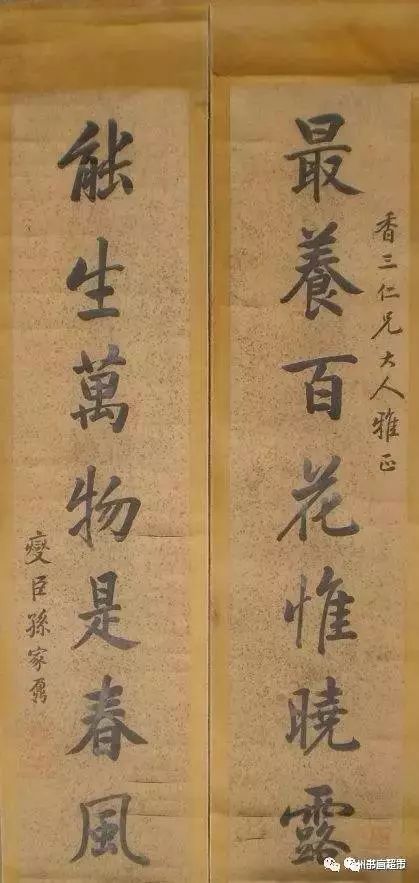 香三仁兄大人雅正
最養百花惟曉露
能生萬物是春風
燮臣孫家鼐
州书画超市